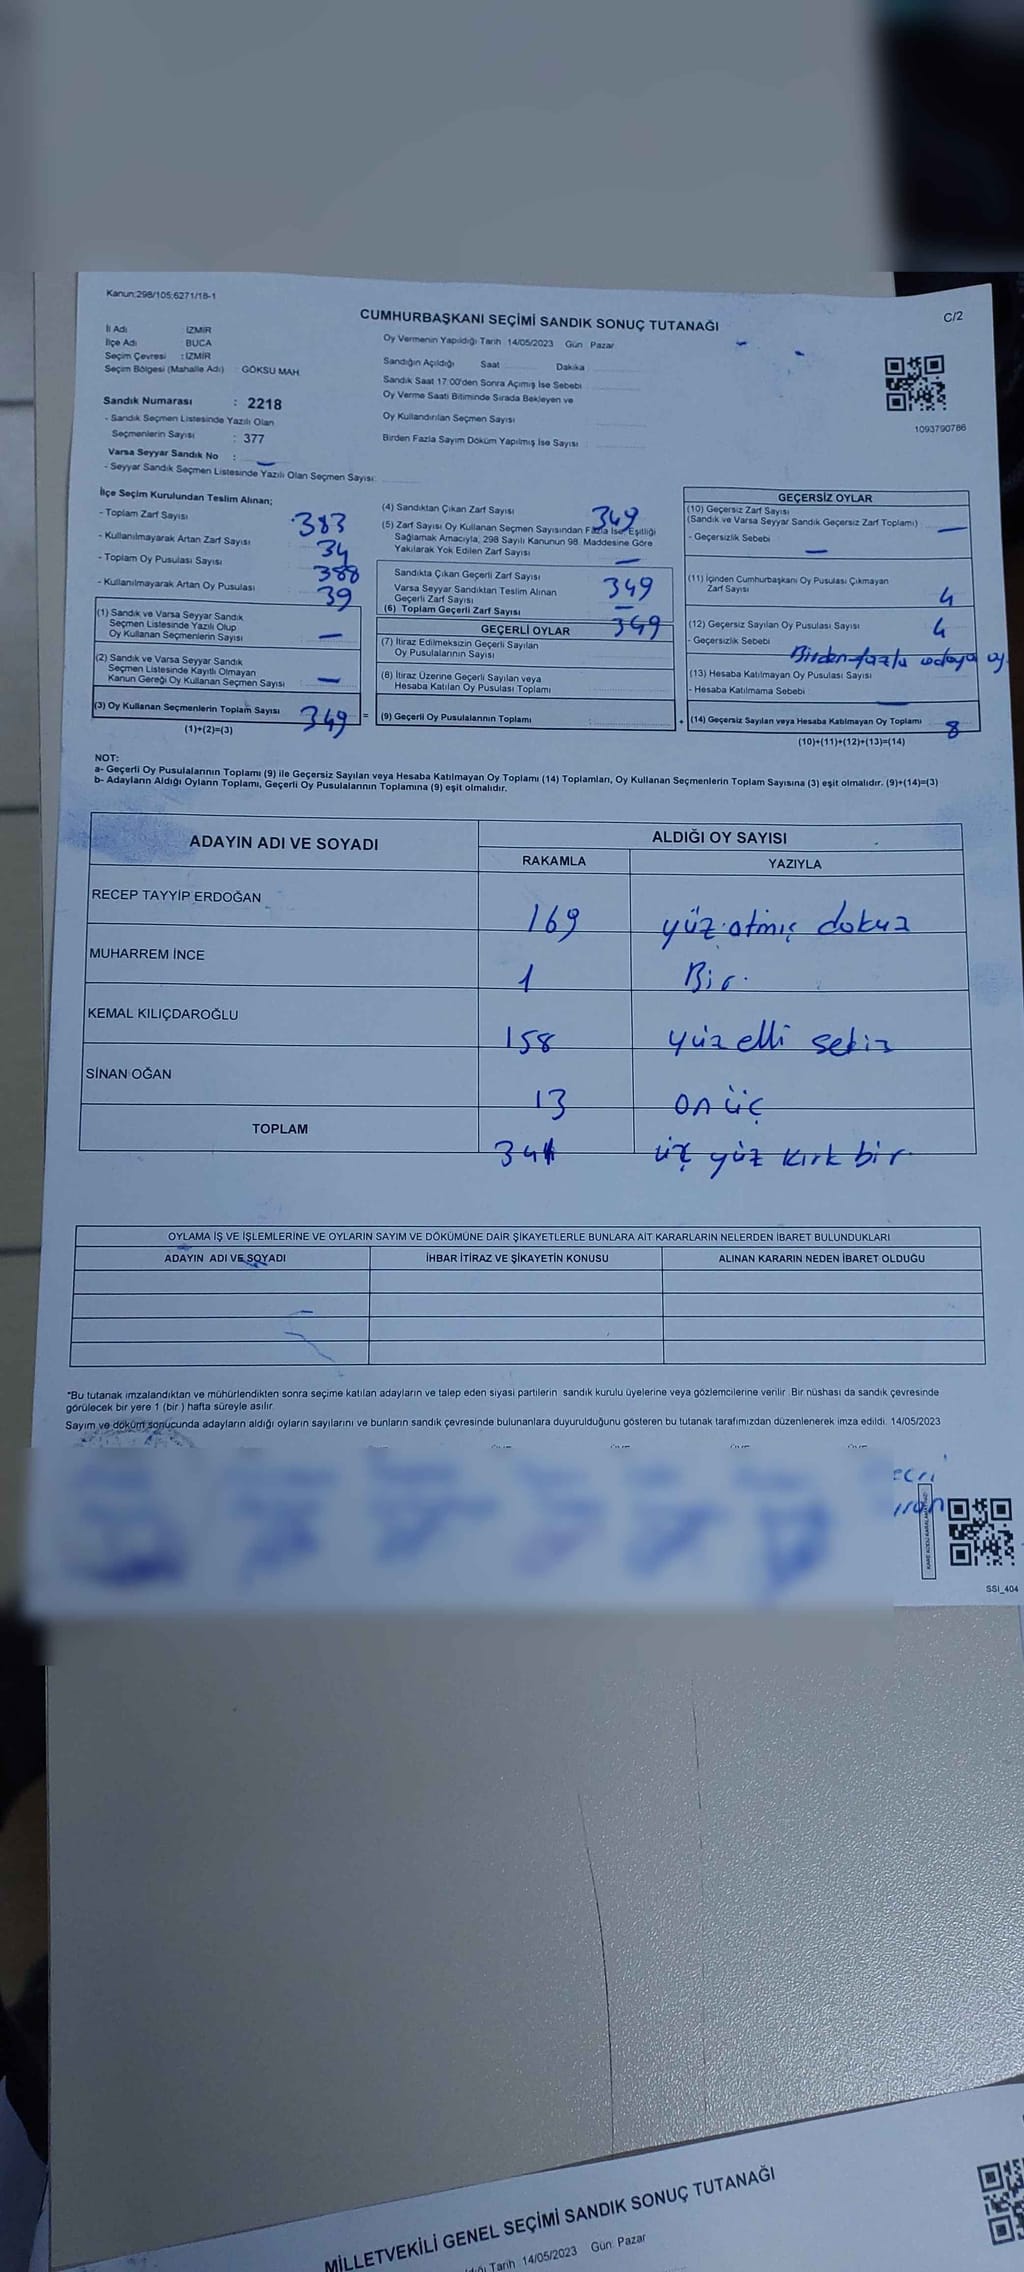 Kanun:298/105;6271/18-1
C/2
CUMHURBAŞKANI SEÇİMİ SANDIK SONUÇ TUTANAĞI
İl Adı : İZMİR
İlçe Adı : BUCA
Seçim Çevresi : İZMİR
Seçim Bölgesi (Mahalle Adı) GÖKSU MAH.
Sandık Numarası : 2218
- Sandık Seçmen Listesinde Yazılı Olan
Seçmenlerin Sayısı : 377
Varsa Seyyar Sandık No : -
- Seyyar Sandık Seçmen Listesinde Yazılı Olan Seçmen Sayısı:
Oy Vermenin Yapıldığı Tarih 14/05/2023 Gün : Pazar
Sandığın Açıldığı Saat Dakika
Sandık Saat 17:00'den Sonra Açımış İse Sebebi
Oy Verme Saati Bitiminde Sırada Bekleyen ve
Oy Kullandırılan Seçmen Sayısı
Birden Fazla Sayım Döküm Yapılmış İse Sayısı :
1093790786
İlçe Seçim Kurulundan Teslim Alınan;
- Toplam Zarf Sayısı 383
- Kullanılmayarak Artan Zarf Sayısı 34
- Toplam Oy Pusulası Sayısı 388
- Kullanılmayarak Artan Oy Pusulası 39
(1) Sandık ve Varsa Seyyar Sandık
Seçmen Listesinde Yazılı Olup
Oy Kullanan Seçmenlerin Sayısı -
(2) Sandık ve Varsa Seyyar Sandık
Seçmen Listesinde Kayıtlı Olmayan
Kanun Gereği Oy Kullanan Seçmen Sayısı -
(3) Oy Kullanan Seçmenlerin Toplam Sayısı 349
(1)+(2)=(3)
=
(4) Sandıktan Çıkan Zarf Sayısı 349
(5) Zarf Sayısı Oy Kullanan Seçmen Sayısından Fazla İse, Eşitliği
Sağlamak Amacıyla, 298 Sayılı Kanunun 98. Maddesine Göre
Yakılarak Yok Edilen Zarf Sayısı -
Sandıkta Çıkan Geçerli Zarf Sayısı 349
Varsa Seyyar Sandıktan Teslim Alınan
Geçerli Zarf Sayısı -
(6) Toplam Geçerli Zarf Sayısı 349
GEÇERLİ OYLAR
(7) İtiraz Edilmeksizin Geçerli Sayılan
Oy Pusulalarının Sayısı
(8) İtiraz Üzerine Geçerli Sayılan veya
Hesaba Katılan Oy Pusulası Toplamı
(9) Geçerli Oy Pusulalarının Toplamı :
+
GEÇERSİZ OYLAR
(10) Geçersiz Zarf Sayısı
(Sandık ve Varsa Seyyar Sandık Geçersiz Zarf Toplamı) -
- Geçersizlik Sebebi -
(11) İçinden Cumhurbaşkanı Oy Pusulası Çıkmayan
Zarf Sayısı 4
(12) Geçersiz Sayılan Oy Pusulası Sayısı 4
- Geçersizlik Sebebi Birden fazla adaya oy
(13) Hesaba Katılmayan Oy Pusulası Sayısı
- Hesaba Katılmama Sebebi -
(14) Geçersiz Sayılan veya Hesaba Katılmayan Oy Toplamı 8
(10)+(11)+(12)+(13)=(14)
NOT:
a- Geçerli Oy Pusulalarının Toplamı (9) ile Geçersiz Sayılan veya Hesaba Katılmayan Oy Toplamı (14) Toplamları, Oy Kullanan Seçmenlerin Toplam Sayısına (3) eşit olmalıdır. (9)+(14)=(3)
b- Adayların Aldığı Oyların Toplamı, Geçerli Oy Pusulalarının Toplamına (9) eşit olmalıdır.
ADAYIN ADI VE SOYADI ALDIĞI OY SAYISI
RAKAMLA YAZIYLA
RECEP TAYYİP ERDOĞAN 169 yüz atmış dokuz
MUHARREM İNCE 1 Bir.
KEMAL KILIÇDAROĞLU 158 yüz elli sekiz
SİNAN OĞAN 13 on üç
TOPLAM 341 üç yüz kırk bir
OYLAMA İŞ VE İŞLEMLERİNE VE OYLARIN SAYIM VE DÖKÜMÜNE DAİR ŞİKAYETLERLE BUNLARA AİT KARARLARIN NELERDEN İBARET BULUNDUKLARI
ADAYIN ADI VE SOYADI İHBAR İTİRAZ VE ŞİKAYETİN KONUSU ALINAN KARARIN NEDEN İBARET OLDUĞU
*Bu tutanak imzalandıktan ve mühürlendikten sonra seçime katılan adayların ve talep eden siyasi partilerin sandık kurulu üyelerine veya gözlemcilerine verilir. Bir nüshası da sandık çevresinde
görülecek bir yere 1 (bir ) hafta süreyle asılır.
Sayım ve döküm sonucunda adayların aldığı oyların sayılarını ve bunların sandık çevresinde bulunanlara duyurulduğunu gösteren bu tutanak tarafımızdan düzenlenerek imza edildi. 14/05/2023
SSI_404
MİLLETVEKİLİ GENEL SEÇİMİ SANDIK SONUÇ TUTANAĞI
Tarih 14/05/2023 Gün: Pazar